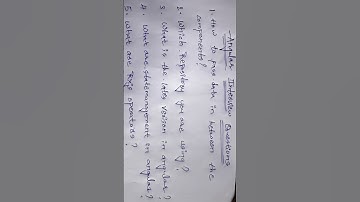 Angular Interview Questions
1. How to pass data in between the
components?
2. Which Repository you are using?
3. What is the lates version in angular?
4. What are statemanagement in angular?
5. What are Rxjs operators?